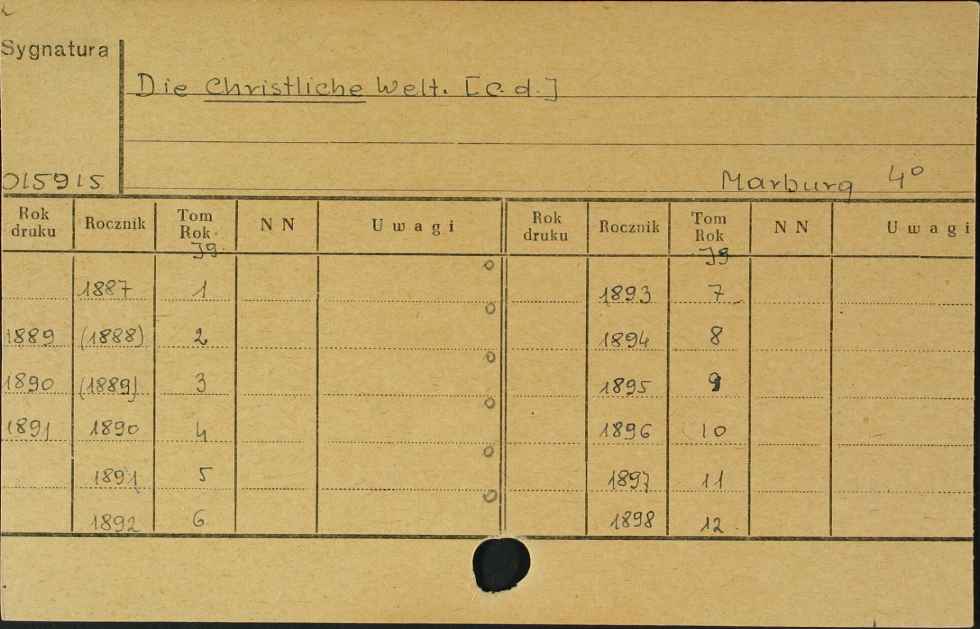 Sygnatura
Die Christliche Welt. [c. d.]
015915
Marburg 4°
Rok druku Rocznik Tom Rok NN Uwagi Rok druku Rocznik Tom Rok NN Uwagi
Jg. Jg
1887 1 1893 7
1889 (1888) 2 1894 8
1890 (1889) 3 1895 9
1891 1890 4 1896 10
1891 5 1897 11
1892 6 1898 12